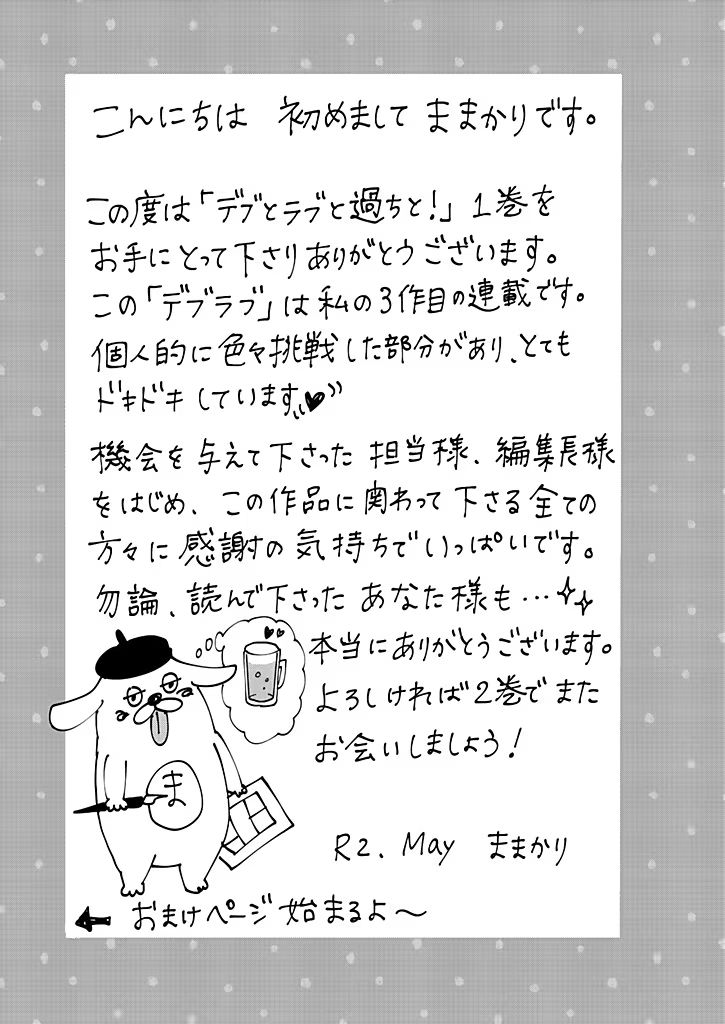 こんにちは 初めまして ままかりです。
この度は「デブとラブと過ちと!」1巻を
お手にとって下さりありがとうございます。
この「デブラブ」は私の3作目の連載です。
個人的に色々挑戦した部分があり、とても
ドキドキしています♥
機会を与えて下さった 担当様、編集長様
をはじめ、この作品に関わって下さる全ての
方々に感謝の気持ちでいっぱいです。
勿論、読んで下さった あなた様も…
本当にありがとうございます。
よろしければ2巻でまた
お会いしましょう!
ま
R2. May ままかり
← おまけページ始まるよ〜